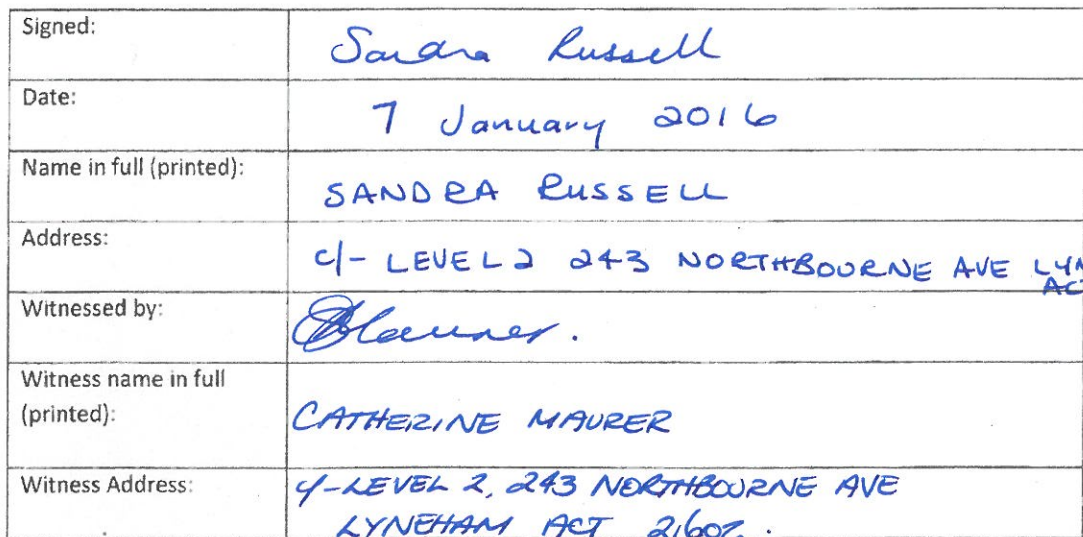 Signed:
Sandra Russell
Date:
7 January 2016
Name in full (printed):
SANDRA RUSSELL
Address:
c/- LEVEL 2 243 NORTHBOURNE AVE LYN
ACT
Witnessed by:
Witness name in full
(printed):
CATHERINE MAURER
Witness Address:
c/-LEVEL 2, 243 NORTHBOURNE AVE
LYNEHAM ACT 2602.